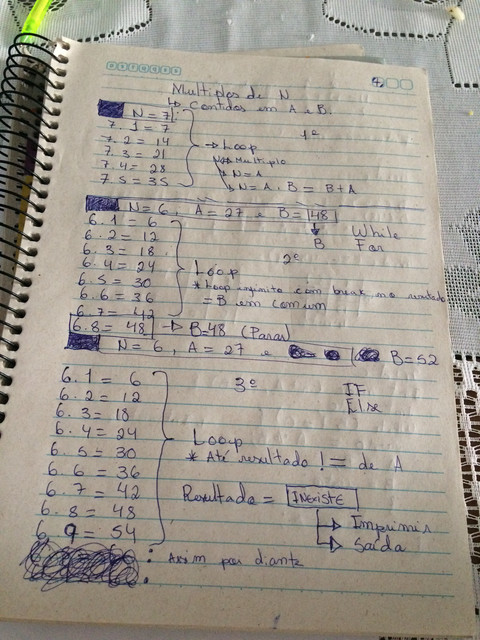 Multiplos de N
↳ Contidos em A e B.
N = 7
7 . 1 = 7
7 . 2 = 14
7 . 3 = 21
7 . 4 = 28
7 . 5 = 35
1º
→ Loop
Multiplo
↳ N = A
↳ N = A . B = B + A
N = 6, A = 27 e B = 48
↓
B
While
For
6 . 1 = 6
6 . 2 = 12
6 . 3 = 18
6 . 4 = 24
6 . 5 = 30
6 . 6 = 36
6 . 7 = 42
6 . 8 = 48 → B=48 (Parar)
2º
Loop
* Loop infinito com break no resultado
= B em comum
N = 6, A = 27 e B = 52
6 . 1 = 6
6 . 2 = 12
6 . 3 = 18
6 . 4 = 24
6 . 5 = 30
6 . 6 = 36
6 . 7 = 42
6 . 8 = 48
6 . 9 = 54
3º
IF
Else
Loop
* Até resultado != de A
Resultado = INEXISTE
→ Imprimir
→ Saída
: Assim por diante